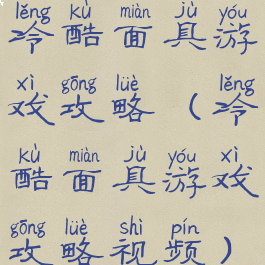 lěng kù miàn jù yóu
冷酷面具游
xì gōng lüè lěng
戏攻略(冷
kù miàn jù yóu xì
酷面具游戏
gōng lüè shì pín
攻略视频)